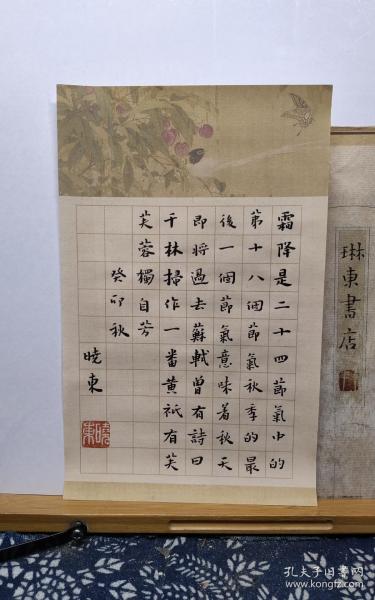 霜降是二十四節氣中的
第十八個節氣秋季的最
後一個節氣意味着秋天
即將過去蘇軾曾有詩曰
千林掃作一番黃祇有芙
芙蓉獨自芳
癸卯秋
曉東
曉東
琳東書店
孔夫子旧书网
kongfz.com